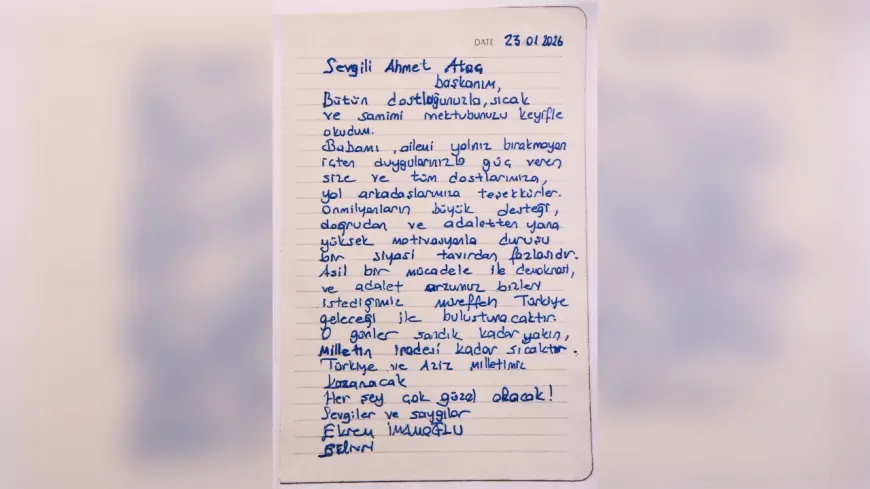 DATE 23 01 2026
Sevgili Ahmet Ataç
başkanım,
Bütün dostluğunuzla, sıcak
ve samimi mektubunuzu keyifle
okudum.
Babamı, ailemi yalnız bırakmayan
içten duygularınızla güç veren
size ve tüm dostlarımıza,
yol arkadaşlarımıza teşekkürler.
Onmilyonların büyük desteği,
doğrudan ve adaletten yana
yüksek motivasyonla duruşu
bir siyasi tavırdan fazlasıdır.
Asil bir mücadele ile demokrasi,
ve adalet arzumuz bizleri
istediğimiz müreffeh Türkiye
geleceği ile buluşturacaktır.
O günler sandık kadar yakın,
Milletin iradesi kadar sıcaktır.
Türkiye ve Aziz Milletimiz
kazanacak
Her şey çok güzel olacak!
Sevgiler ve saygılar
Ekrem İMAMOĞLU